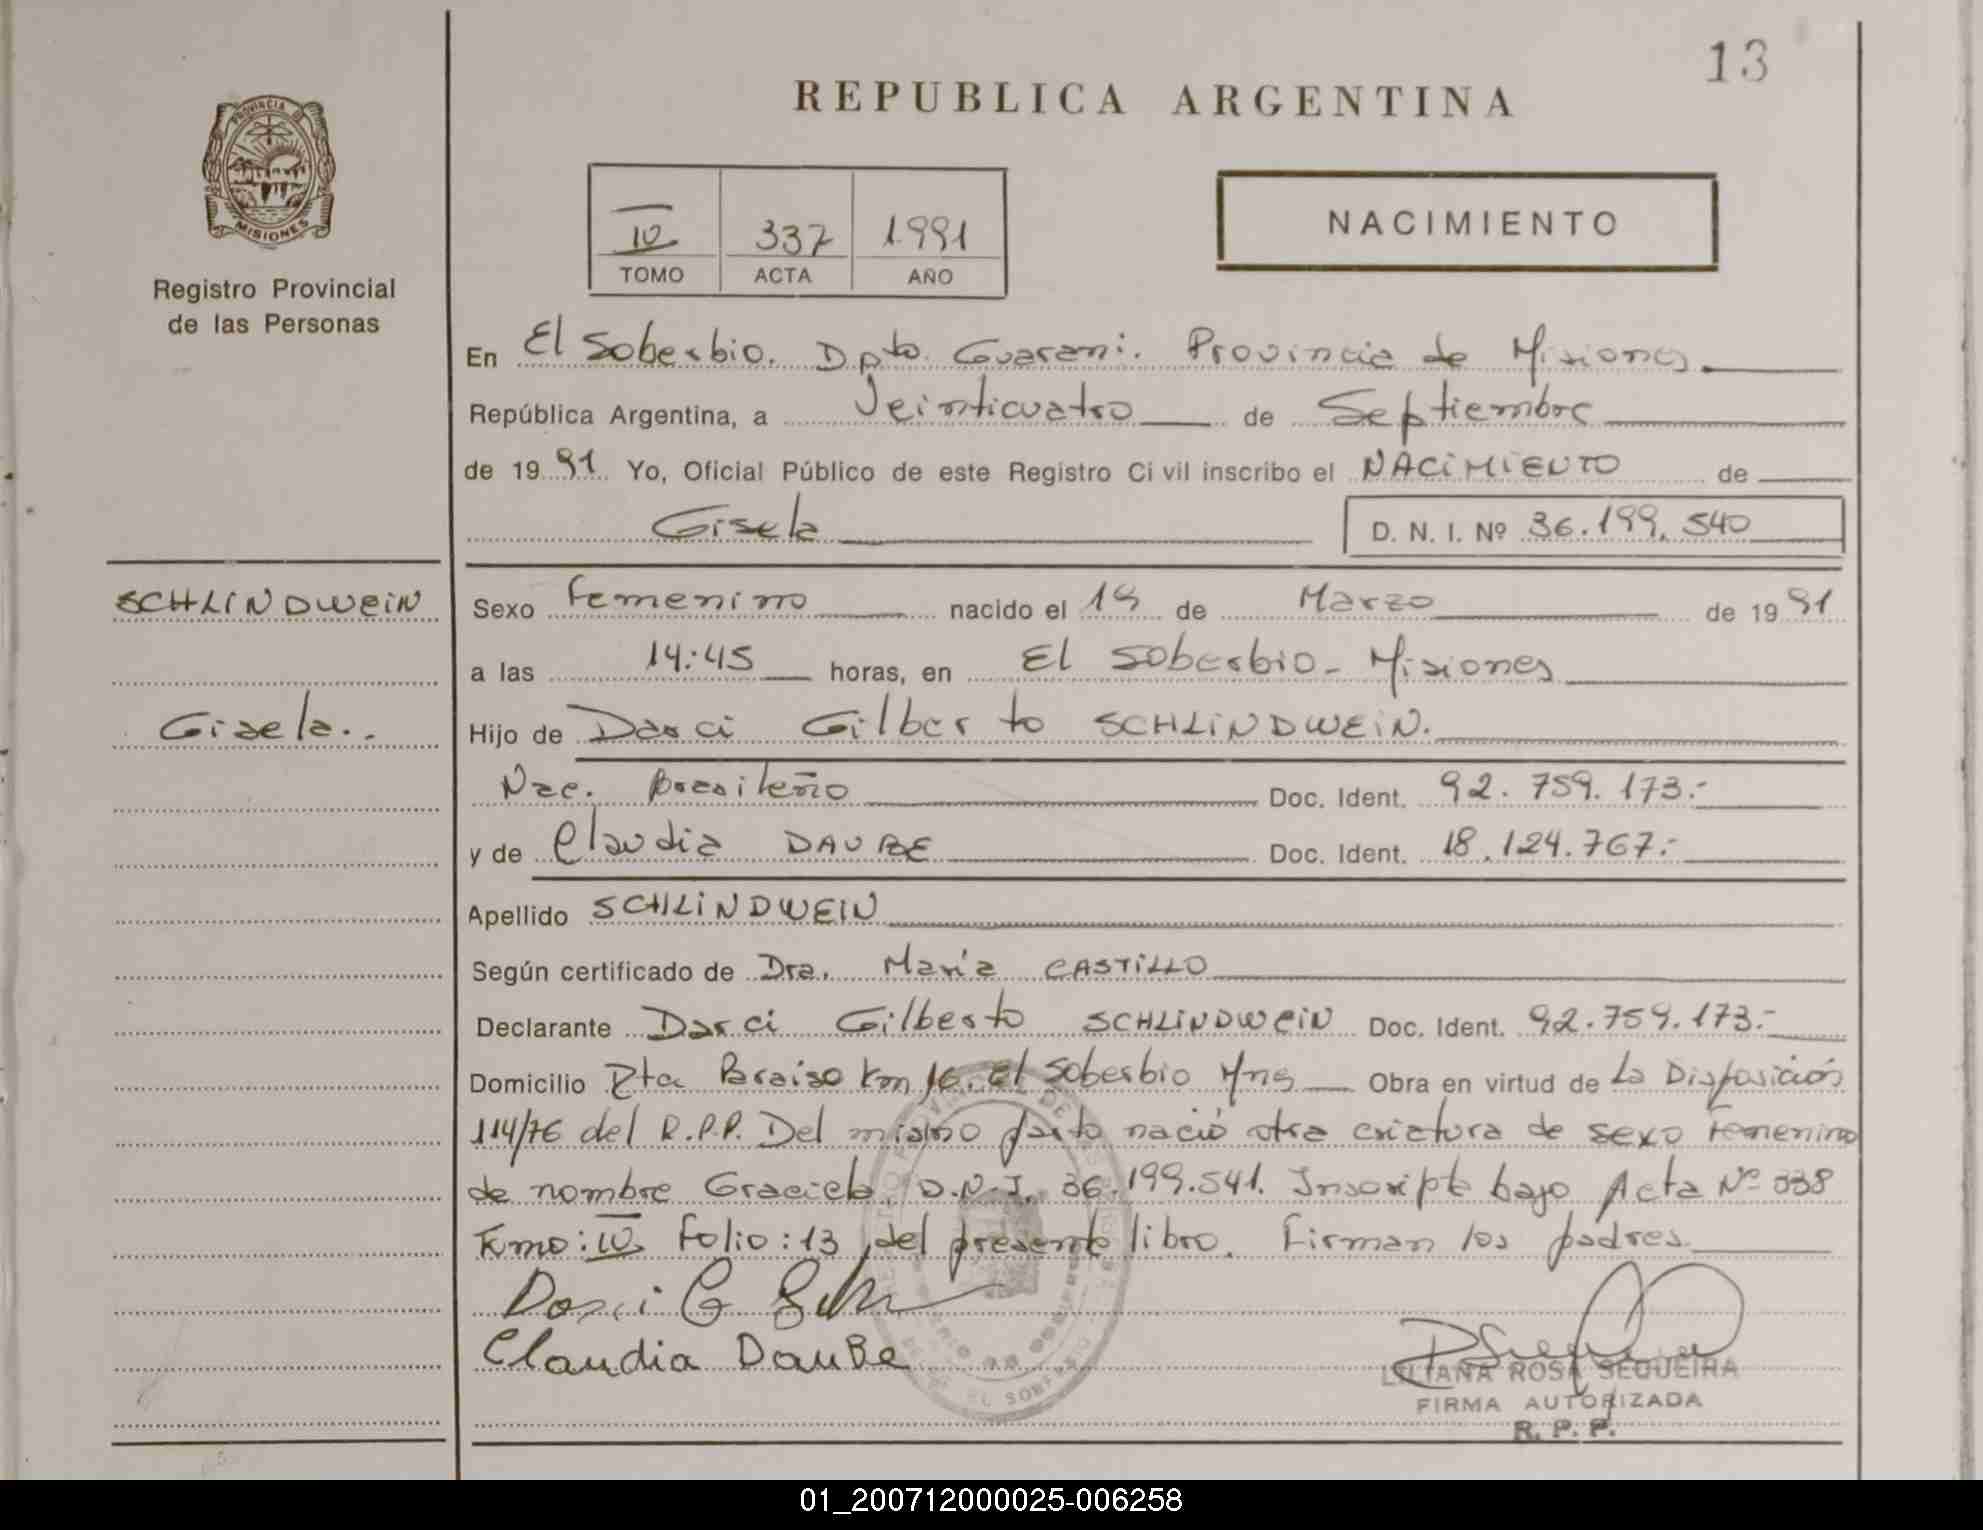 13
REPUBLICA ARGENTINA
PROVINCIA DE
MISIONES
Registro Provincial
de las Personas
IV 337 1.991
TOMO ACTA AÑO
NACIMIENTO
En El Soberbio. Dpto. Guarani. Provincia de Misiones
República Argentina, a Veinticuatro de Septiembre
de 19 91 Yo, Oficial Público de este Registro Civil inscribo el NACIMIENTO de
Gisela D. N. I. Nº 36.199.540
SCHLINDWEIN
Gisela..
Sexo Femenino nacido el 19 de Marzo de 19 91
a las 14:45 horas, en El Soberbio - Misiones
Hijo de Darci Gilberto SCHLINDWEIN.
Nac. Brasileño Doc. Ident. 92.759.173.-
y de Claudia DAUBE Doc. Ident. 18.124.767.-
Apellido SCHLINDWEIN
Según certificado de Dra. María CASTILLO
Declarante Darci Gilberto SCHLINDWEIN Doc. Ident. 92.759.173.-
Domicilio Pta Paraiso Km 16. El Soberbio Mns Obra en virtud de La Disposición
114/76 del R.P.P. Del mismo parto nació otra criatura de sexo Femenino
de nombre Graciela D.N.I. 36.199.541. Inscripta bajo Acta Nº 338
Tomo: IV Folio: 13 del presente libro. Firman los padres
Darci G
Claudia Daube
LILIANA ROSA SEQUEIRA
FIRMA AUTORIZADA
R. P. P.
01_200712000025-006258